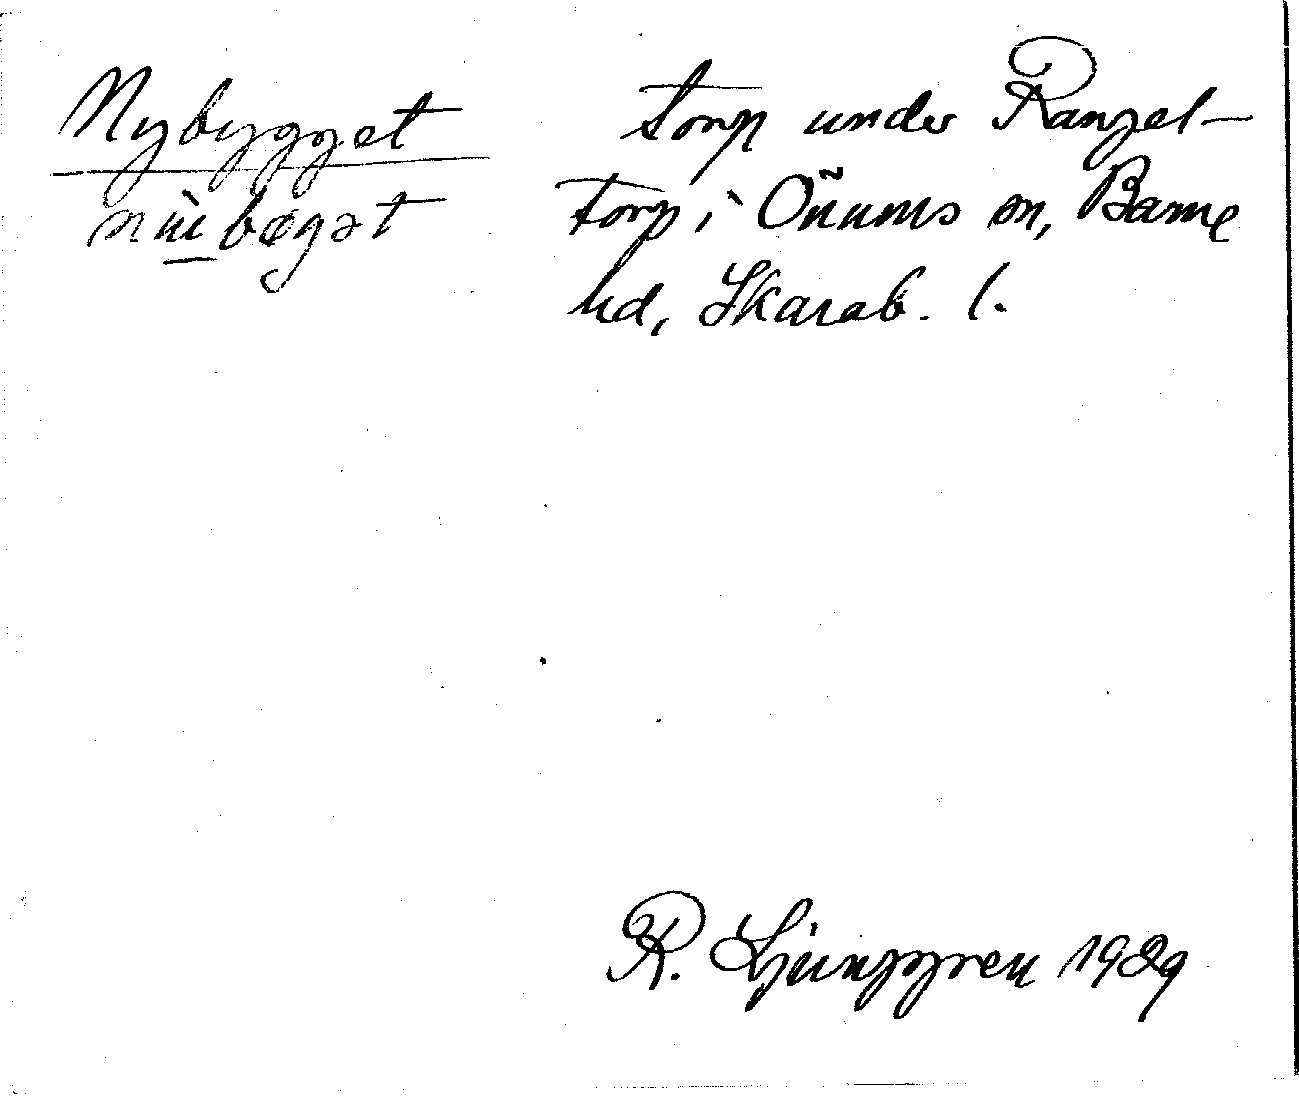 Nybygget
torp under Rangel-
torp i Önums sn, Barne
hd, Skarab. l.
R. Ljunggren 1929